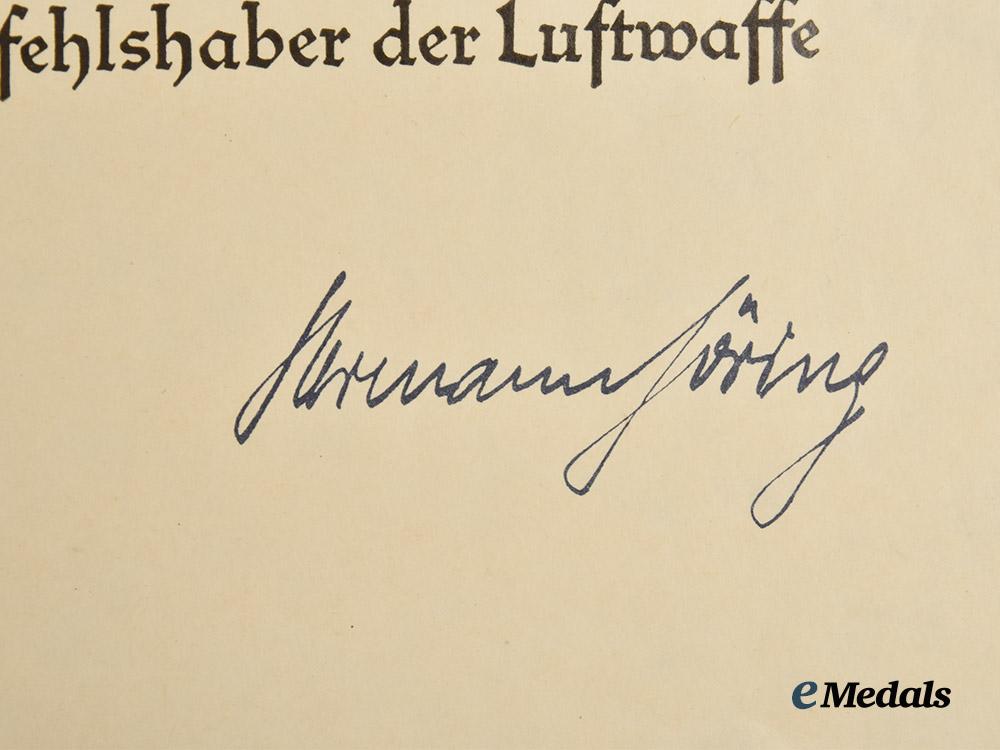 fehlshaber der Luftwaffe
Hermann Göring
e Medals